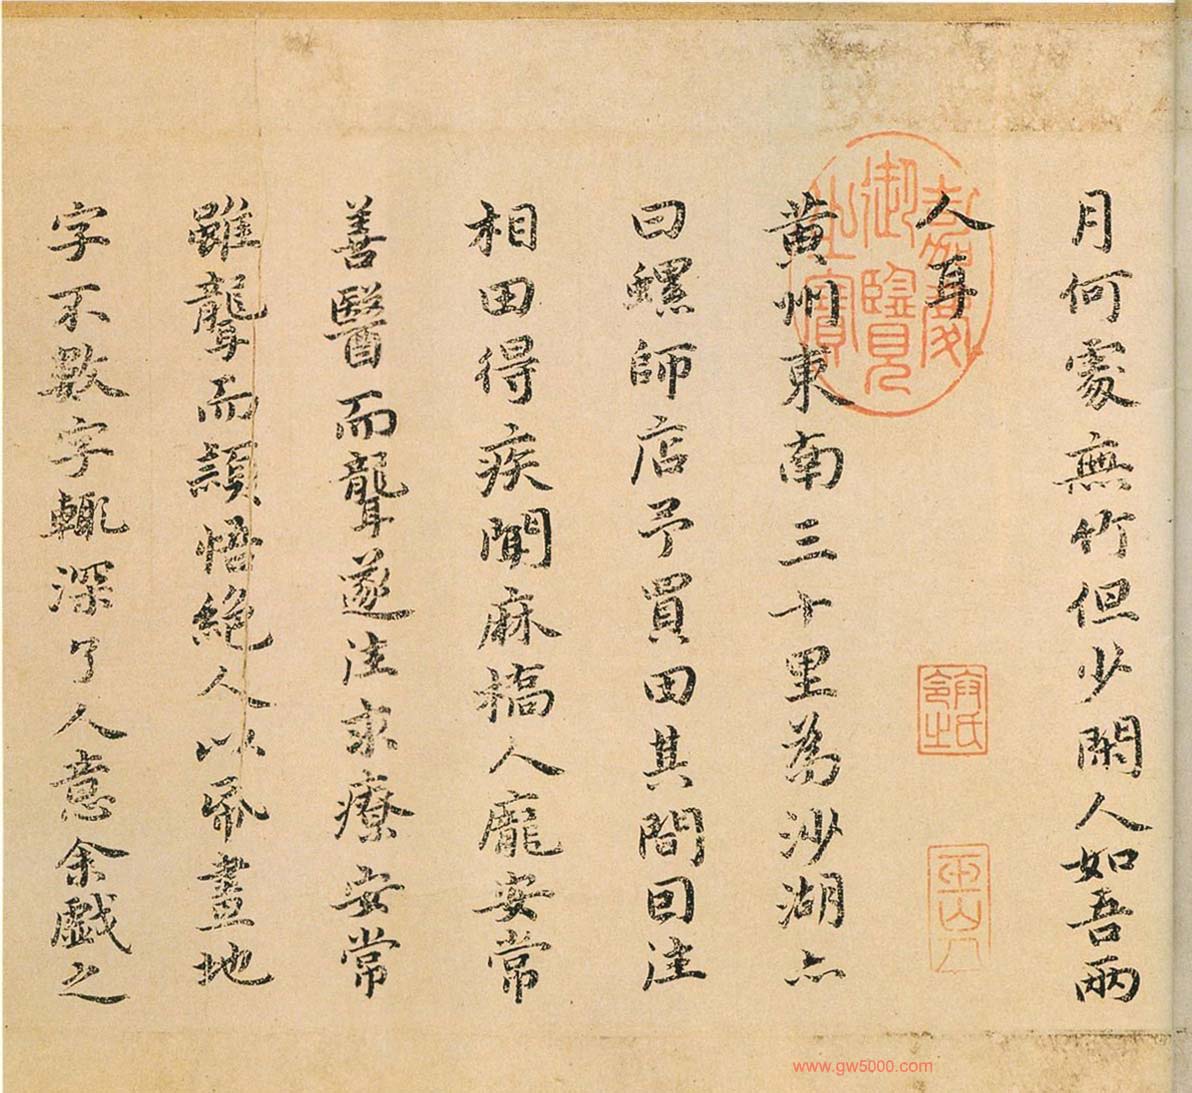 月何處無竹但少閑人如吾兩
人耳
黃州東南三十里為沙湖亦
曰螺師店予買田其間回往
相田得疾聞麻橋人龐安常
善醫而聾遂往求療安常
雖聾而頴悟絕人以紙畫地
字不數字輒深了人意余戲之
嘉慶
御覽
之寶
www.gw5000.com